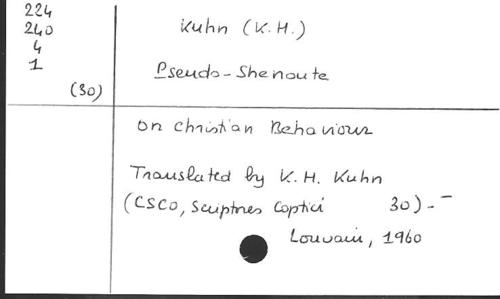 224
240
4
1
(30)
Kuhn (K.H.)
Pseudo-Shenoute
On Christian Behaviour
Translated by K. H. Kuhn
(CSCO, Scriptores Coptici 30).-
Louvain, 1960